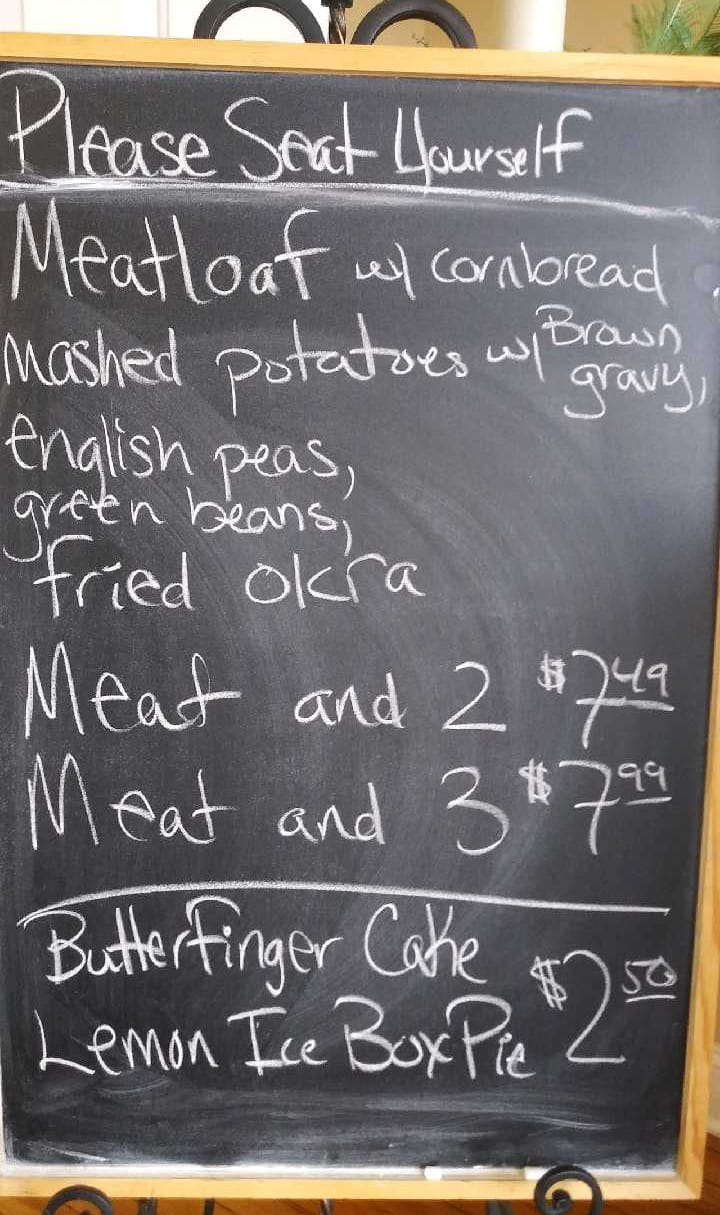 Please Seat Yourself
Meatloaf w/ cornbread
mashed potatoes w/ Brown gravy,
english peas,
green beans,
fried okra
Meat and 2 $7 49
Meat and 3 $7 99
Butterfinger Cake
Lemon Ice Box Pie $2 50